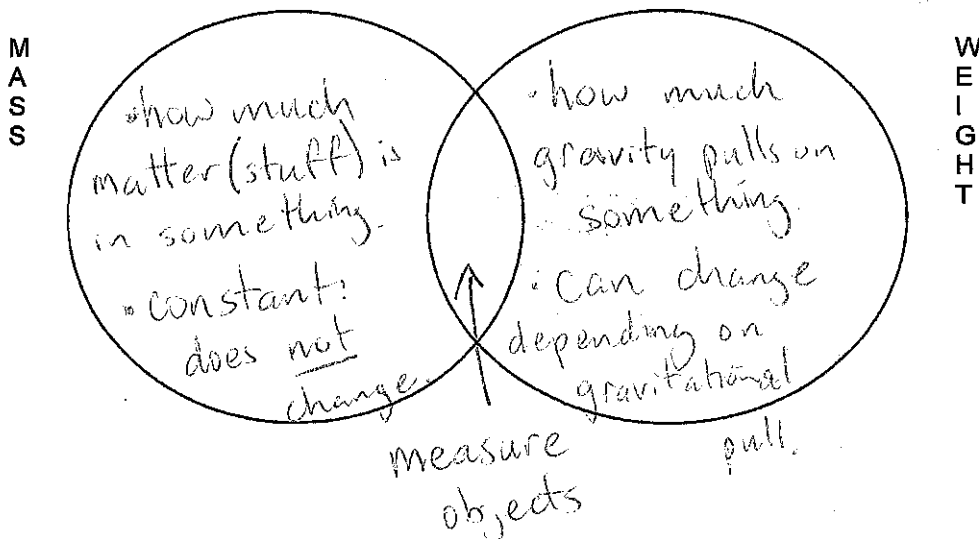 MASS
•how much
matter(stuff) is
in something.
• constant:
does not
change.
WEIGHT
• how much
gravity pulls on
something.
• can change
depending on
gravitational
pull.
measure
objects